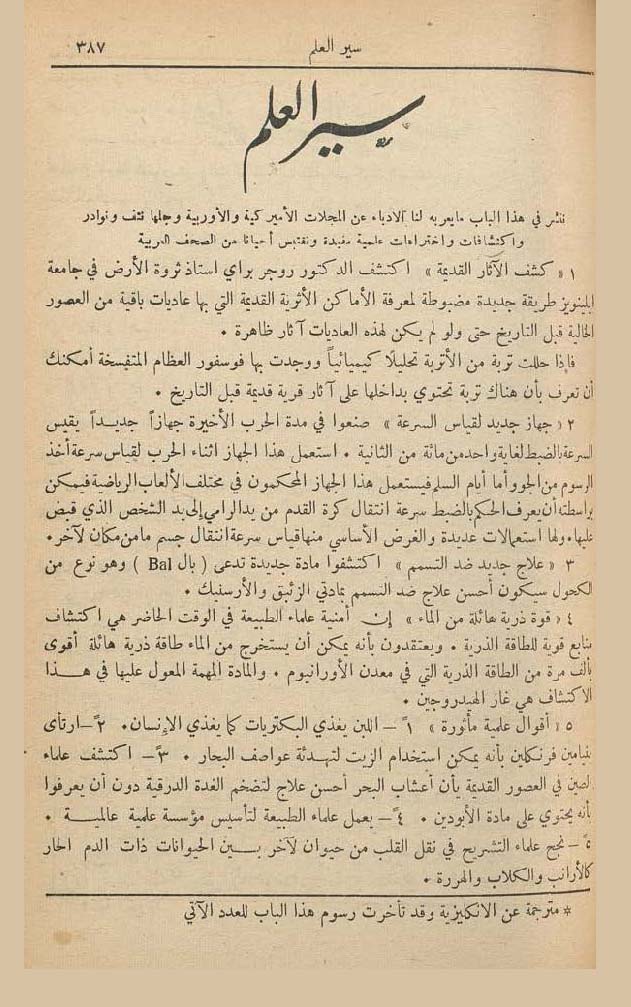 سير العلم ٣٨٧
سير العلم
ننشر في هذا الباب مايعربه لنا الادباء عن المجلات الأميركية والأوربية وجلها نتف ونوادر
واكتشافات واختراعات علمية مفيدة ونقتبس أحيانا من الصحف العربية
١ « كشف الآثار القديمة » اكتشف الدكتور روجر براي استاذ ثروة الأرض في جامعة
ايلينويز طريقة جديدة مضبوطة لمعرفة الأماكن الأثرية القديمة التي بها عاديات باقية من العصور
الخالية قبل التاريخ حتى ولو لم يكن لهذه العاديات آثار ظاهرة •
فإذا حللت تربة من الأتربة تحليلاً كيميائياً ووجدت بها فوسفور العظام المتفسخة أمكنك
أن تعرف بأن هناك تربة تحتوي بداخلها على آثار قرية قديمة قبل التاريخ •
٢ « جهاز جديد لقياس السرعة » صنعوا في مدة الحرب الأخيرة جهازاً جديداً يقيس
السرعة بالضبط لغاية واحد من مائة من الثانية • استعمل هذا الجهاز اثناء الحرب لقياس سرعة أخذ
الرسوم من الجو وأما أيام السلم فيستعمل هذا الجهاز المحكمون في مختلف الألعاب الرياضية فيمكن
بواسطته أن يعرف الحكم بالضبط سرعة انتقال كرة القدم من يد الرامي إلى يد الشخص الذي قبض
عليها • ولها استعمالات عديدة والغرض الأساسي منها قياس سرعة انتقال جسم ما من مكان لآخر •
٣ « علاج جديد ضد التسمم » اكتشفوا مادة جديدة تدعى ( بال Bal ) وهو نوع من
الكحول سيكون أحسن علاج ضد التسمم بمادتي الزئبق والأرسنيك •
٤ « قوة ذرية هائلة من الماء » إن أمنية علماء الطبيعة في الوقت الحاضر هي اكتشاف
منابع قوية للطاقة الذرية • ويعتقدون بأنه يمكن أن يستخرج من الماء طاقة ذرية هائلة أقوى
بألف مرة من الطاقة الذرية التي في معدن الأورانيوم • والمادة المهمة المعول عليها في هذا
الاكتشاف هي غاز الهيدروجين •
٥ « أقوال علمية مأثورة » ١ً – اللبن يغذي البكتريات كما يغذي الإنسان • ٢ً – ارتأى
بنيامين فرنكلين بأنه يمكن استخدام الزيت لتهدئة عواصف البحار • ٣ً – اكتشف علماء
الصين في العصور القديمة بأن أعشاب البحر أحسن علاج لتضخم الغدة الدرقية دون أن يعرفوا
بأنه يحتوي على مادة الأيودين • ٤ً – يعمل علماء الطبيعة لتأسيس مؤسسة علمية عالمية •
٥ً – نجح علماء التشريح في نقل القلب من حيوان لآخر بين الحيوانات ذات الدم الحار
كالأرانب والكلاب والهررة •
* مترجمة عن الانكليزية وقد تأخرت رسوم هذا الباب للعدد الآتي